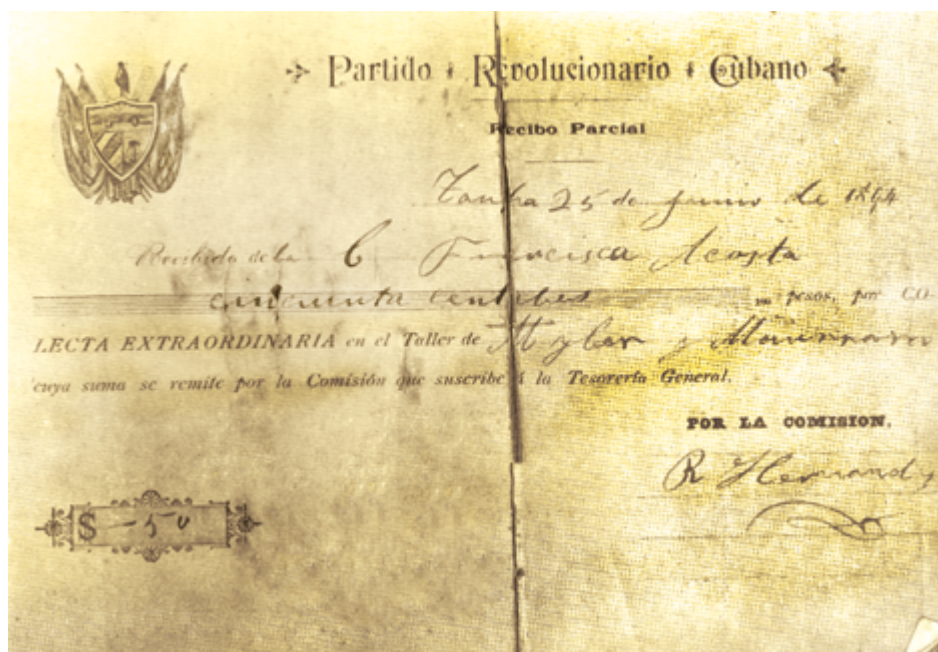 Partido Revolucionario Cubano
Recibo Parcial
Tampa 25 de junio de 1894
Recibido de la C Francisca Acosta
cincuenta centabos pesos, por CO-
LECTA EXTRAORDINARIA en el Taller de
cuya suma se remite por la Comisión que suscribe á la Tesorería General.
POR LA COMISION,
R Hernandz
$ -50